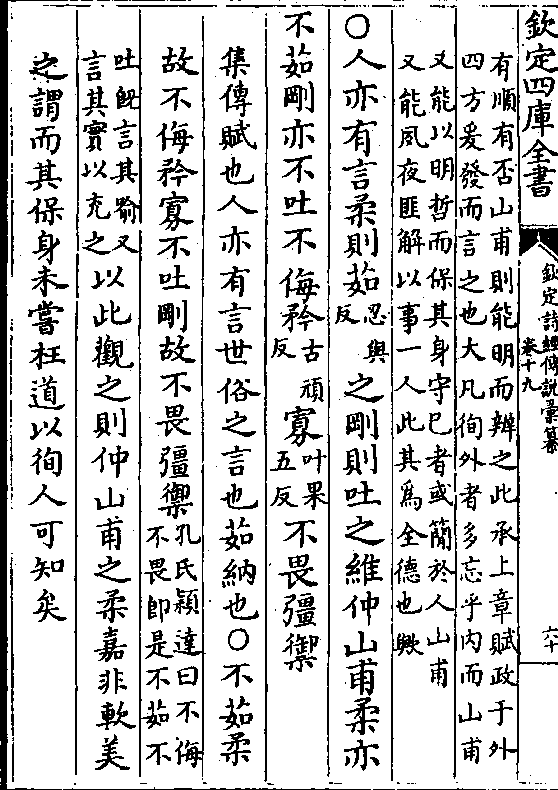 欽定四庫全書
欽定詩經傳說彙纂
卷十九
六十
有順有否山甫則能明而辨之此承上章賦政于外
四方爰發而言之也大凡徇外者多忘乎内而山甫
又能以明哲而保其身守己者或簡於人山甫
又能夙夜匪解以事一人此其為全德也歟
○人亦有言柔則茹忍與反之剛則吐之維仲山甫柔亦
不茹剛亦不吐不侮矜古頑反寡叶果五反不畏彊禦
集傳賦也人亦有言世俗之言也茹納也○不茹柔
故不侮矜寡不吐剛故不畏彊禦孔氏穎達曰不侮不畏即是不茹不
吐既言其喻又言其實以充之以此觀之則仲山甫之柔嘉非軟美
之謂而其保身未嘗枉道以徇人可知矣